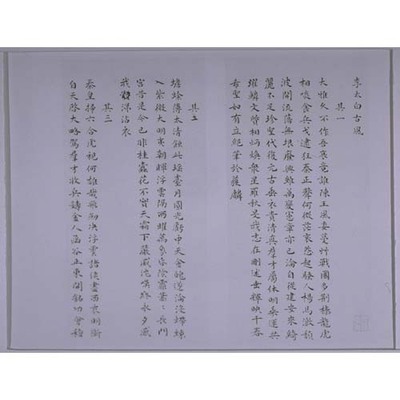 李太白古風
其一
大雅久不作吾衰竟誰陳王風委蔓草戰國多荊榛龍虎
相啖食兵戈逮狂秦正聲何微茫哀怨起騷人揚馬激頹
波開流蕩無垠廢興雖萬變憲章亦已淪自從建安來綺
麗不足珍聖代復元古垂衣貴清真羣才屬休明乘運共
躍鱗文質相炳煥衆星羅秋旻我志在刪述垂輝映千春
希聖如有立絕筆於獲麟
其二
蟾蜍薄太清蝕此瑤臺月圓光虧中天金魄遂淪沒螮蝀
入紫微大明夷朝暉浮雲隔兩曜萬象昏陰霏蕭蕭長門
宮昔是今已非桂蠹花不實天霜下嚴威沈嘆終永夕感
我涕沾衣
其三
秦皇掃六合虎視何雄哉飛劍決浮雲諸侯盡西來明斷
自天啓大略駕羣才收兵鑄金人函谷正東開銘功會稽